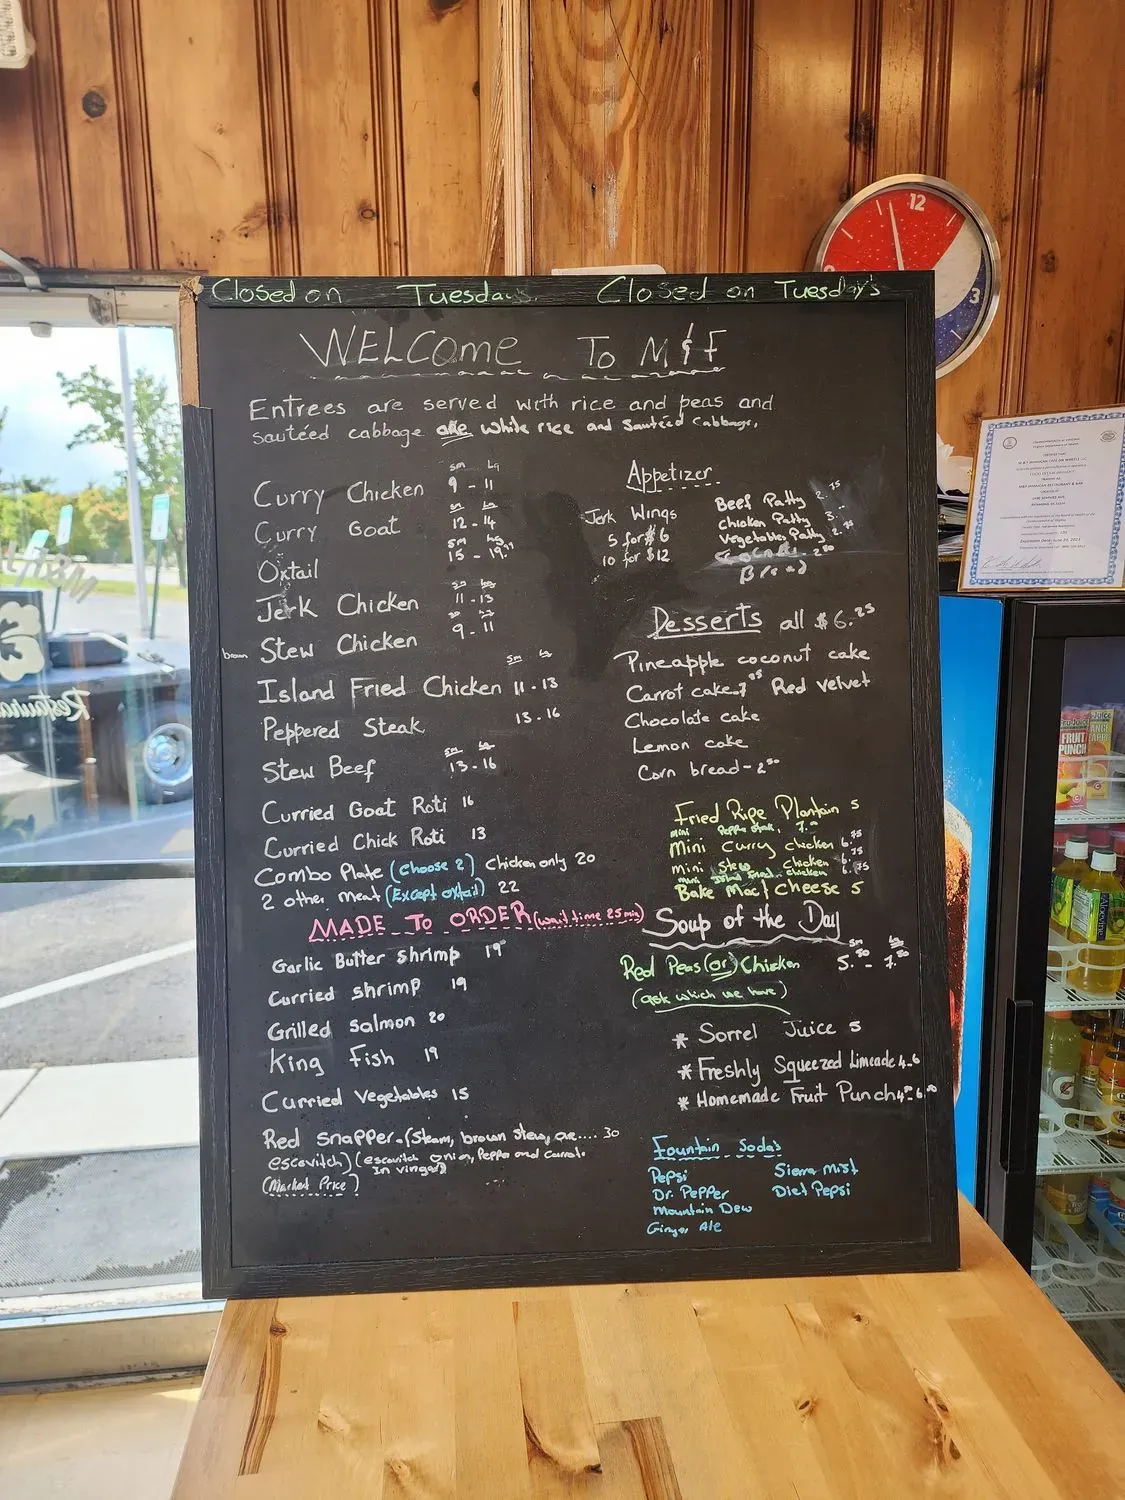 Closed on Tuesdays Closed on Tuesday's
WELCOME TO M & F
Entrees are served with rice and peas and
sautéed cabbage are white rice and sautéed cabbage.
sm Lg
Curry Chicken 9 - 11
sm Lg
Curry Goat 12 - 14
sm Lg
Oxtail 15 - 19.99
Jerk Chicken 11 - 13
brown Stew Chicken 9 - 11
sm Lg
Island Fried Chicken 11 - 13
Peppered Steak 13 - 16
sm Lg
Stew Beef 13 - 16
Curried Goat Roti 16
Curried Chick Roti 13
Combo Plate (Choose 2) Chicken only 20
2 other meat (Except oxtail) 22
MADE TO ORDER (wait time 25 min)
Garlic Butter Shrimp 19
Curried Shrimp 19
Grilled Salmon 20
King Fish 19
Curried Vegetables 15
Red Snapper-(Steam, brown stew, or.... 30
escovitch) (escovitch onion, Pepper and Carrot.
in vinger)
(Market Price)
Appetizer
Jerk Wings
5 for $6
10 for $12
Beef Patty 2.75
Chicken Patty 3.
Vegetables Patty 2.75
Desserts all $6.25
Pineapple coconut cake
Carrot cake-7 Red Velvet
Chocolate cake
Lemon cake
Corn bread - 2.50
Fried Ripe Plantain 5
mini Pepper Steak, 7.
Mini Curry Chicken 6.75
Mini Stew Chicken 6.75
mini Island Fried chicken 6.75
Bake Mac & Cheese 5
Soup of the Day
sm Lg
Red Peas (or) Chicken 5.50 - 7.50
(ask which we have)
* Sorrel Juice 5
* Freshly Squeezed Limeade 4-6
* Homemade Fruit Punch
Fountain Sodas
Pepsi
Dr. Pepper
Mountain Dew
Ginger Ale
Sierra Mist
Diet Pepsi
12
3
FRUIT
PUNCH